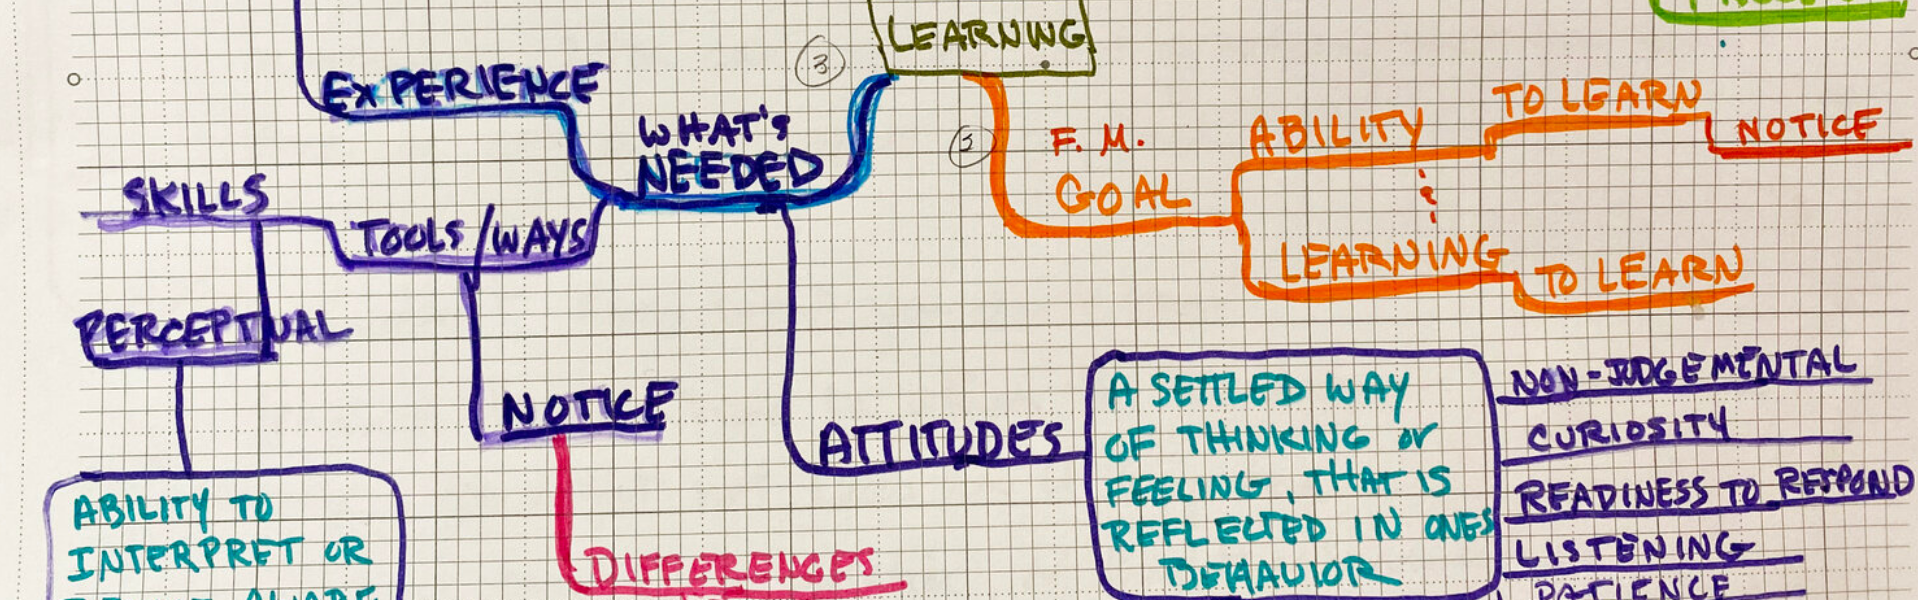 LEARNING
3
EXPERIENCE
WHAT'S
NEEDED
F. M.
GOAL
ABILITY
TO LEARN
NOTICE
LEARNING
TO LEARN
SKILLS
TOOLS/WAYS
PERCEPTUAL
NOTICE
DIFFERENCES
ABILITY TO
INTERPRET OR
ATTITUDES
A SETTLED WAY
OF THINKING or
FEELING, THAT IS
REFLECTED IN ONES
BEHAVIOR
NON-JUDGEMENTAL
CURIOSITY
READINESS TO RESPOND
LISTENING
PATIENCE